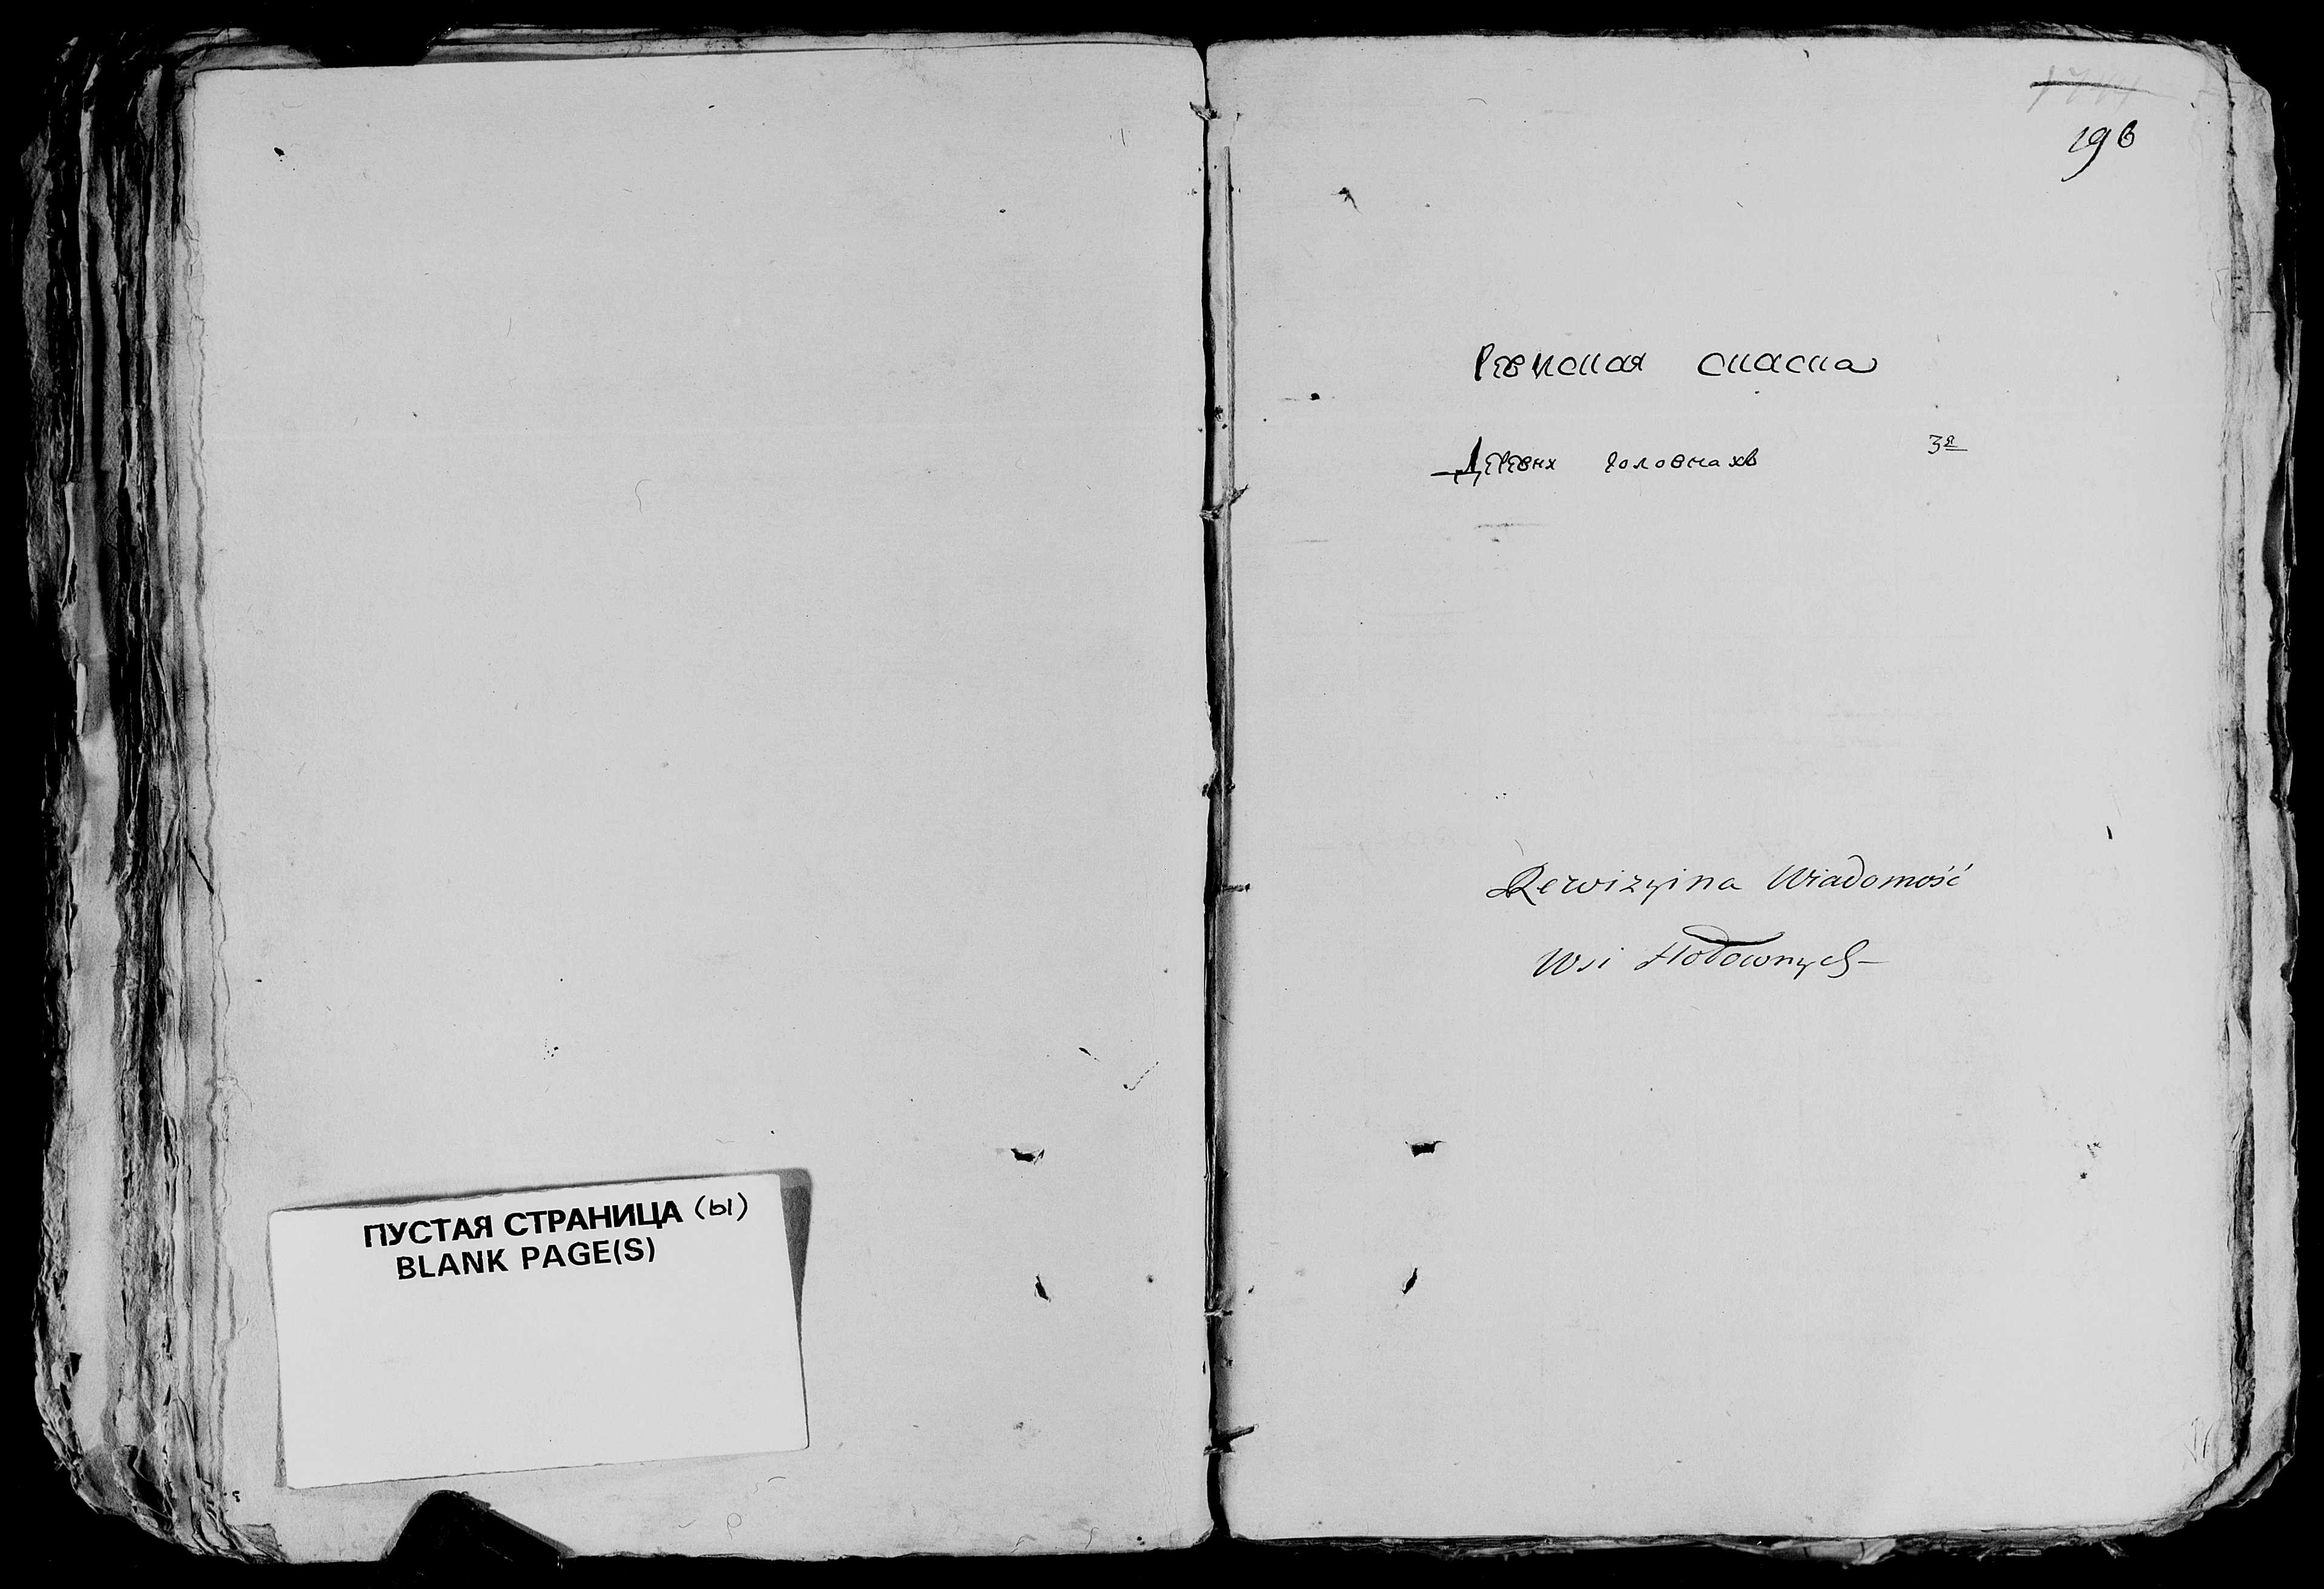 ПУСТАЯ СТРАНИЦА (ы)
BLANK PAGE(S)
196
Ревиская сказка
Деревня Головнахъ 3я
Rewizyina Wiadomość
Wsi Hołownych